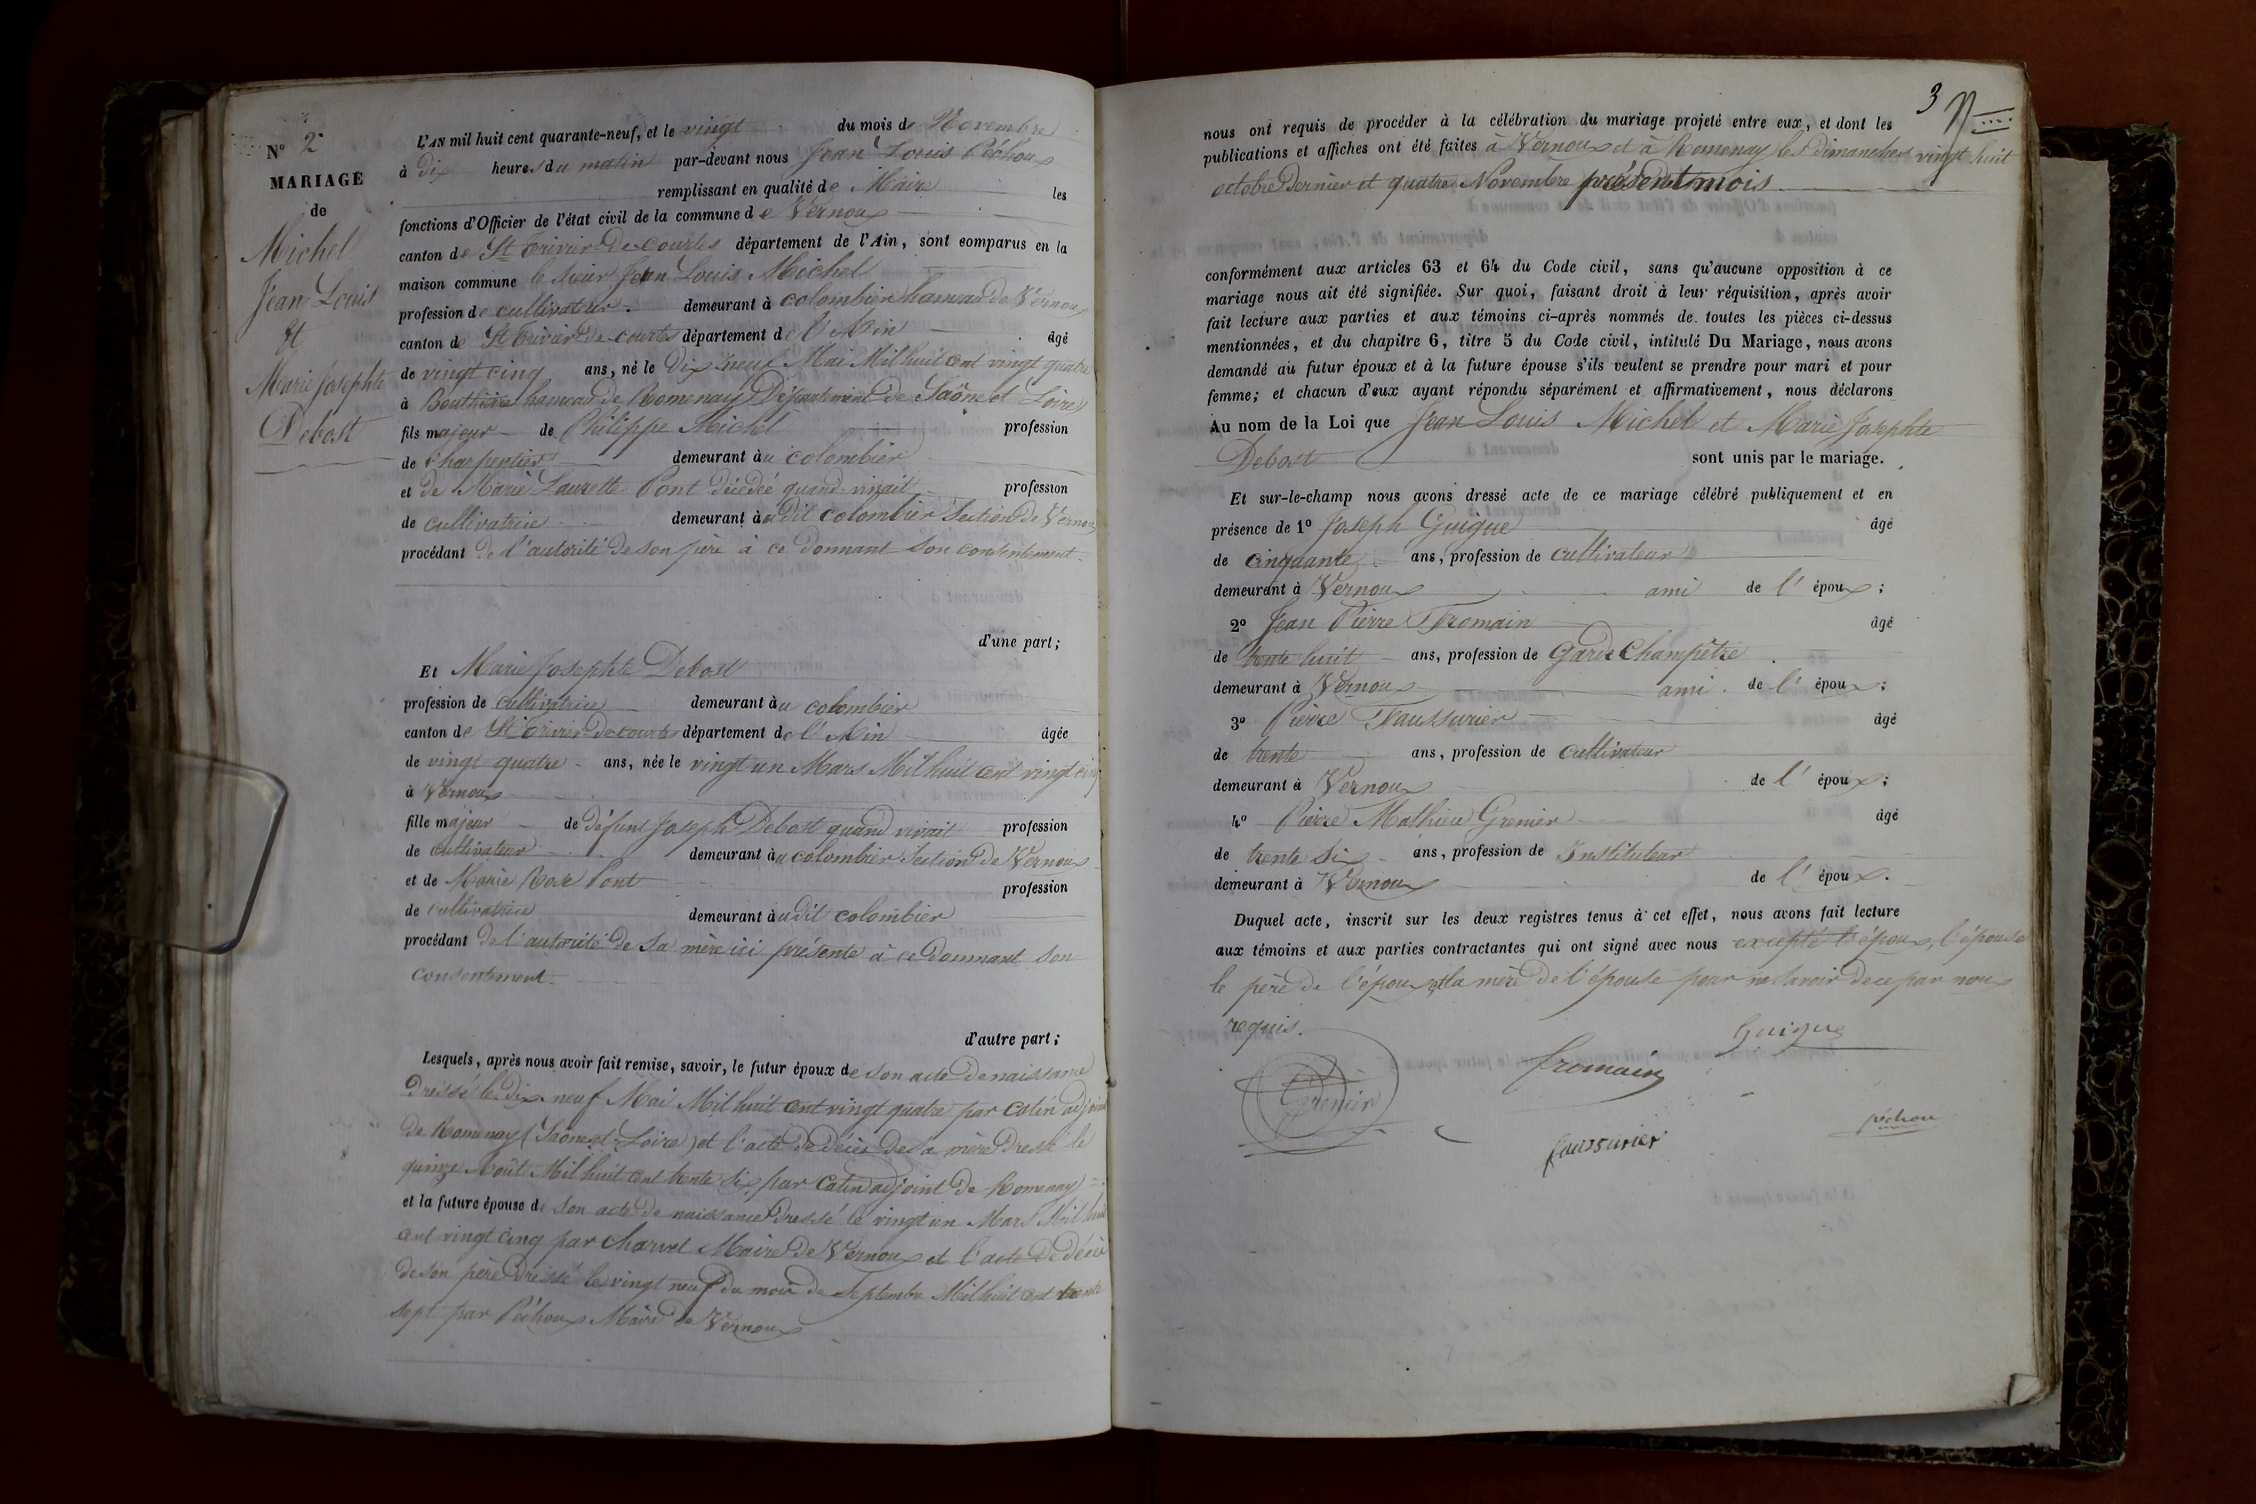 N° 2
MARIAGE
de
Michel
Jean Louis
Et
Marie Josephte
Debost
L'AN mil huit cent quarante-neuf, et le vingt du mois de Novembre
à dix heures du matin par-devant nous Jean Louis Péchoux
remplissant en qualité de Maire les
fonctions d'Officier de l'état civil de la commune de Vernoux
canton de St Trivier De courtes département de l'Ain, sont comparus en la
maison commune le sieur Jean Louis Michel
profession de cultivateur. demeurant à colombier hameau De Vernoux
canton de St Trivier de courtes département de l'Ain âgé
de vingt cinq ans, né le Dix neuf Mai Mil huit cent vingt quatre
à hameau de Romenay Département de Saône et Loire
fils majeur de Philippe Michel profession
de charpentier demeurant à au colombier
et de Marie Laurette Pont décédée quand vivait profession
de cultivatrice demeurant à au dit colombier Section De Vernoux
procédant de l'autorité de son père à ce donnant son consentement
d'une part ;
Et Marie Josephte Debost
profession de cultivatrice demeurant à au colombier
canton de St Trivier De courtes département de l'Ain âgée
de vingt quatre ans, née le vingt un Mars Mil huit cent vingt cinq
à Vernoux
fille majeur de défunt Joseph Debost quand vivait profession
de cultivateur demeurant à au colombier Section de Vernoux
et de Marie Rose Pont profession
de cultivatrice demeurant à au dit colombier
procédant de l'autorité de sa mère ici présente à ce donnant son
consentement
d'autre part ;
Lesquels, après nous avoir fait remise, savoir, le futur époux de son acte de naissance
Dressé le dix neuf Mai Mil huit cent vingt quatre par Catin adjoint
de Romenay (Saône et Loire) et l'acte de décès de sa mère Dressé le
quinze Août Mil huit cent trente six par Catin adjoint de Romenay
et la future épouse de son acte de naissance Dressé le vingt un Mars Mil huit
cent vingt cinq par Charvet Maire de Vernoux et l'acte De décès
de son père Dressé le vingt neuf du mois de Septembre Mil huit cent trente
sept par Péchoux Maire de Vernoux
3
nous ont requis de procéder à la célébration du mariage projeté entre eux, et dont les
publications et affiches ont été faites à Vernoux et à Romenay les dimanches vingt huit
octobre Dernier et quatre Novembre présent mois
conformément aux articles 63 et 64 du Code civil, sans qu'aucune opposition à ce
mariage nous ait été signifiée. Sur quoi, faisant droit à leur réquisition, après avoir
fait lecture aux parties et aux témoins ci-après nommés de toutes les pièces ci-dessus
mentionnées, et du chapitre 6, titre 5 du Code civil, intitulé Du Mariage, nous avons
demandé au futur époux et à la future épouse s'ils veulent se prendre pour mari et pour
femme ; et chacun d'eux ayant répondu séparément et affirmativement, nous déclarons
Au nom de la Loi que Jean Louis Michel et Marie Josephte
Debost sont unis par le mariage.
Et sur-le-champ nous avons dressé acte de ce mariage célébré publiquement et en
présence de 1° Joseph Guigue âgé
de cinquante ans, profession de cultivateur
demeurant à Vernoux ami de l' époux ;
2° Jean Pierre Fromain âgé
de trente huit ans, profession de Garde Champêtre
demeurant à Vernoux ami de l' époux ;
3° Pierre Faussurier âgé
de trente ans, profession de cultivateur
demeurant à Vernoux de l' époux ;
4° Pierre Mathieu Grenier âgé
de trente six ans, profession de Instituteur
demeurant à Vernoux de l' époux.
Duquel acte, inscrit sur les deux registres tenus à cet effet, nous avons fait lecture
aux témoins et aux parties contractantes qui ont signé avec nous excepté l'époux, l'épouse
le père de l'époux et la mère De l'épouse pour ne savoir de ce par nous
requis.
Guigue
fromain
Grenier
péchoux
faussurier